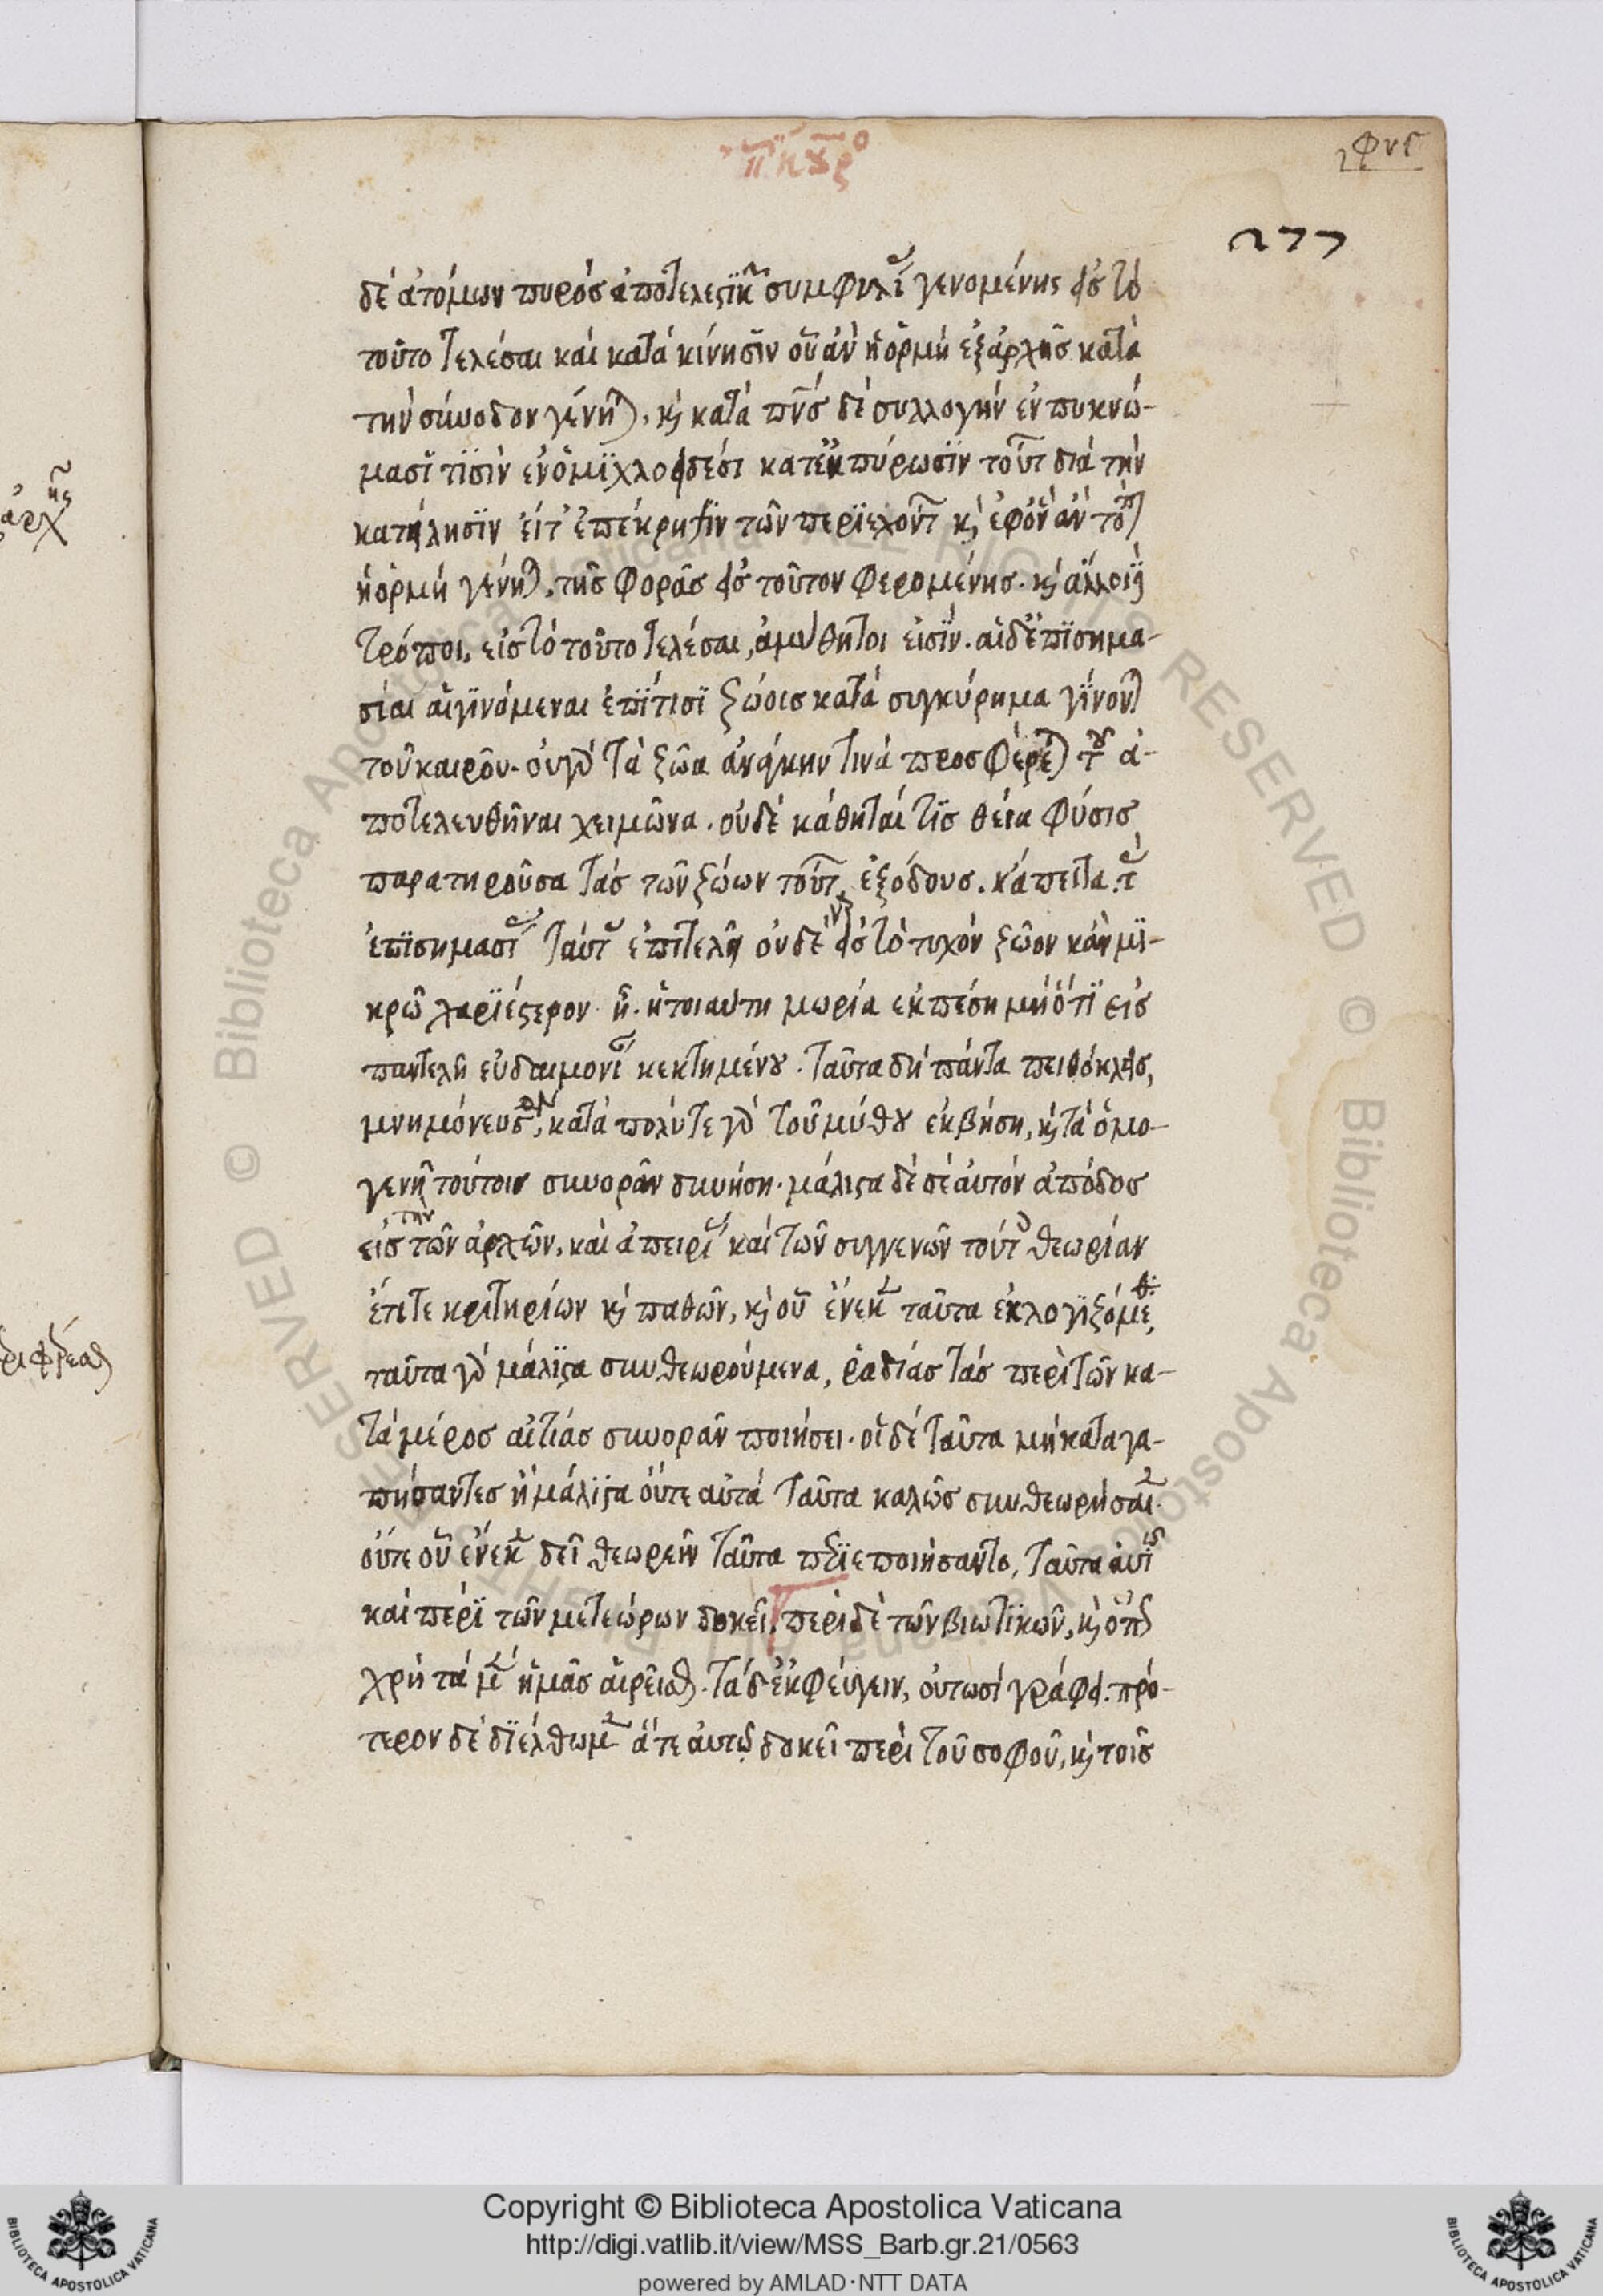 ἐπικούρο
φνϛ
277
δὲ ἀτόμων πυρὸς ἀποτελεστικῶν συμφυλίας γενομένης εἰς τὸ
τοῦτο τελέσαι καὶ κατὰ κίνησιν οὗ ἂν ἡ ὁρμὴ ἐξ ἀρχῆς κατὰ
τὴν σύνοδον γένηται. κỳ κατὰ πνς δὲ συλλογὴν ἐν πυκνώ-
μασί τισὶν ἐν ὁμιχλοειδέσι κατ' ἐκπύρωσιν τούτ διὰ τὴν
κατ λησιν εἶτ' ἐπέκρηξιν τῶν περιεχοντ κỳ ἐφ' ὃν ἂν τόπ
ἡ ὁρμὴ γένηται, τῆς φορᾶς εἰς τοῦτον φερομένης. κỳ ἄλλοι δὲ
τρόποι, εἰς τὸ τοῦτο τελέσαι, ἀμύθητοι εἰσὶν. αἱ δ' ἐπισημα-
σίαι αἱ γινόμεναι ἐπί τισι ζώοις κατὰ συγκύρημα γίνονται
τοῦ καιροῦ. οὐ γὰρ τὰ ζῶα ἀνάγκην τινὰ προσφέρεται τοῦ ἀ-
ποτελευθῆναι χειμῶνα. οὐδὲ κάθηταί τις θεία φύσις
παρατηροῦσα τὰς τῶν ζώων τούτ ἐξόδους. κἄπειτα τὰς
ἐπισημασίας ταύτας ἐπιτελῆ οὐδὲ γὰρ εἰς τὸ τυχὸν ζῶον κἂν μι-
κρῶ χαριέστερον ᾖ. ἡ τοιαύτη μωρία ἐκπέση μὴ ὅτι εἰς
παντελῆ εὐδαιμονίαν κεκτημένου. ταῦτα δὴ πάντα πειθόκλεις,
μνημόνευσον, κατὰ πολύ τε γὰρ τοῦ μύθου ἐκβήση, κỳ τὰ ὁμο-
γενῆ τούτοις συνορᾶν δυνήση. μάλιστα δὲ σεαυτὸν ἀπόδος
εἰς τὴν τῶν ἀρχῶν, καὶ ἀπειρίας καὶ τῶν συγγενῶν τούτοις θεωρίαν
ἔτι τε κριτηρίων κỳ παθῶν, κỳ οὗ ἕνεκεν ταῦτα ἐκλογιζόμεθα,
ταῦτα γὰρ μάλιστα συνθεωρούμενα, ῥαδίας τὰς περὶ τῶν κα-
τὰ μέρος αἰτίας συνορᾶν ποιήσει. οἱ δὲ ταῦτα μὴ καταγα-
πήσαντες ἢ μάλιστα οὔτε αὐτὰ ταῦτα καλῶς συνθεωρήσαιεν
οὔτε οὗ ἕνεκεν δεῖ θεωρεῖν ταῦτα περιεποιήσαντο, ταῦτα αὐτῷ
καὶ περὶ τῶν μετεώρων δοκεῖ. περὶ δὲ τῶν βιωτικῶν, κỳ ὅπως
χρὴ τὰ μὲν ἡμᾶς αἱρεῖσθαι. τὰ δ' ἐκφεύγειν, οὑτωσὶ γράφει. πρό-
τερον δὲ διέλθωμεν ἅ τε αὐτῷ δοκεῖ περὶ τοῦ σοφοῦ, κỳ τοῖς
Copyright © Biblioteca Apostolica Vaticana
http://digi.vatlib.it/view/MSS_Barb.gr.21/0563
powered by AMLAD·NTT DATA